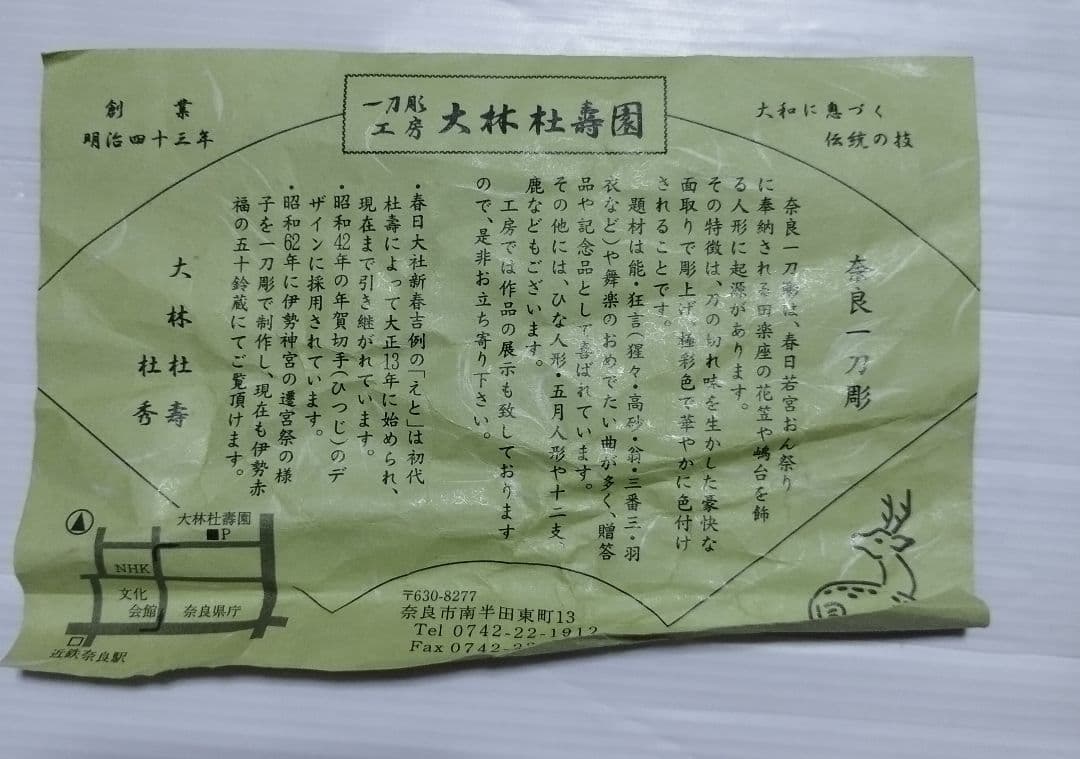 大和に息づく
伝統の技
一刀彫
工房
大林杜壽園
創業
明治四十三年
奈良一刀彫
奈良一刀彫は、春日若宮おん祭り
に奉納される田楽座の花笠や嶋台を飾
る人形に起源があります。
その特徴は、刀の切れ味を生かした豪快な
面取りで彫上げ、極彩色で華やかに色付け
されることです。
題材は能・狂言(猩々・高砂・翁・三番三・羽
衣など)や舞楽のおめでたい曲が多く、贈答
品や記念品として喜ばれています。
その他には、ひな人形・五月人形や十二支、
鹿などもございます。
工房では作品の展示も致しております
ので、是非お立ち寄り下さい。
・春日大社新春吉例の「えと」は初代
杜壽によって大正13年に始められ、
現在まで引き継がれています。
・昭和42年の年賀切手(ひつじ)のデ
ザインに採用されています。
・昭和62年に伊勢神宮の遷宮祭の様
子を一刀彫で制作し、現在も伊勢赤
福の五十鈴蔵にてご覧頂けます。
大林杜壽
杜秀
大林杜壽園
P
NHK
文化
会館
奈良県庁
近鉄奈良駅
〒630-8277
奈良市南半田東町13
Tel 0742-22-1912
Fax 0742-2